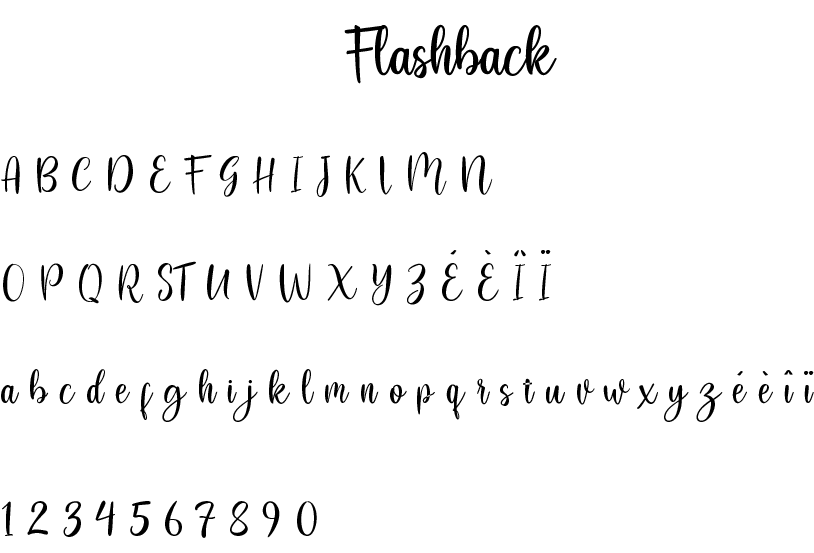 Flashback
A B C D E F G H I J K L M N
O P Q R S T U V W X Y Z É È Î Ï
a b c d e f g h i j k l m n o p q r s t u v w x y z é è î ï
1 2 3 4 5 6 7 8 9 0